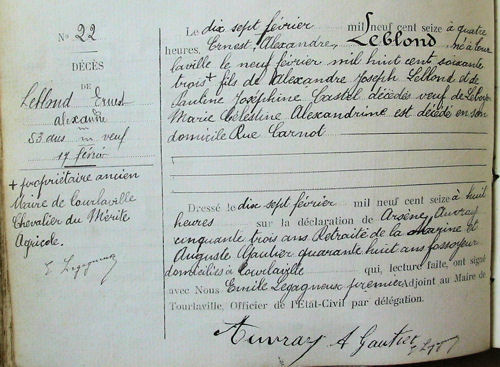 N° 22
DÉCÈS
DE
Leblond Ernest
Alexandre
53 ans veuf
17 févr
+ propriétaire ancien
Maire de Tourlaville
Chevalier du Mérite
Agricole.
E Legagneux
Le dix sept février mil neuf cent seize à quatre
heures, Ernest, Alexandre, Leblond, né à Tour
laville le neuf février mil huit cent soixante
trois + fils de Alexandre Joseph Leblond et de
Pauline Joséphine Castel décédés veuf de
Marie Célestine Alexandrine est décédé en son
domicile Rue Carnot
Dressé le dix sept février mil neuf cent seize à huit
heures sur la déclaration de Arsène Auvray
cinquante trois ans Retraité de la Marine et
Auguste Gautier quarante huit ans fossoyeur
domiciliés à Tourlaville qui, lecture faite, ont signé
avec Nous Emile Legagneux premier Adjoint au Maire de
Tourlaville, Officier de l'État-Civil par délégation.
Auvray A Gautier